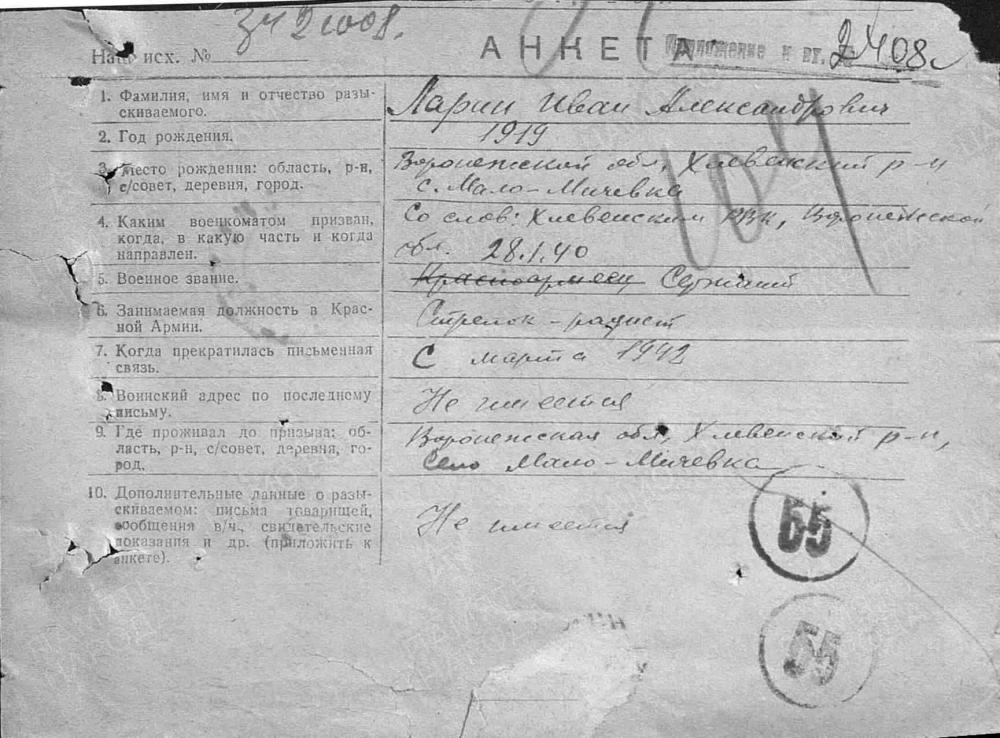 Наш исх. №
АНКЕТА
Приложение к вх.
1. Фамилия, имя и отчество разы-
скиваемого.
Ларин Иван Александрович
2. Год рождения.
1919
3. Место рождения: область, р-н,
с/совет, деревня, город.
Воронежский обл, Хлевенский р-н
с. Мало-Мичевка
4. Каким военкоматом призван,
когда, в какую часть и когда
направлен.
Со слов: Хлевенским РВК, Воронежской
обл. 28.1.40
5. Военное звание.
Красноармеец Сержант
6. Занимаемая должность в Крас-
ной Армии.
Стрелок-радист
7. Когда прекратилась письменная
связь.
С марта 1942
8. Воинский адрес по последнему
письму.
Не имеется
9. Где проживал до призыва: об-
ласть, р-н, с/совет, деревня, го-
род.
Воронежская обл, Хлевенский р-н,
село Мало-Мичевка
10. Дополнительные данные о разы-
скиваемом: письма товарищей,
сообщения в/ч., свидетельские
показания и др. (приложить к
анкете).
Не имеется
55
55